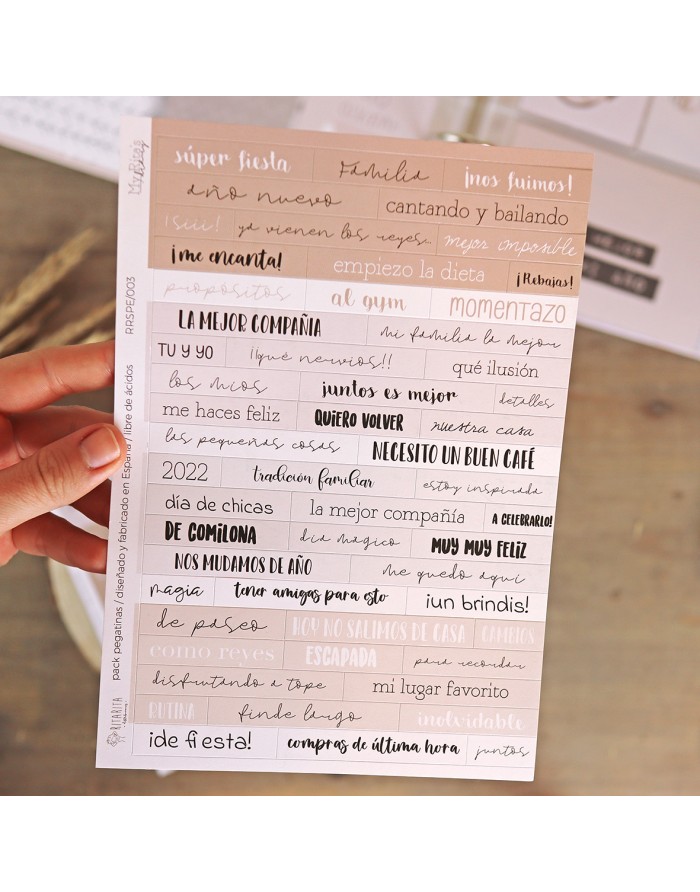 súper fiesta Familia ¡nos fuimos!
año nuevo cantando y bailando
¡siii! ya vienen los reyes.. mejor imposible
¡me encanta! empiezo la dieta ¡Rebajas!
propósitos al gym momentazo
LA MEJOR COMPAÑIA mi familia la mejor
TU Y YO ¡¡qué nervios!! qué ilusión
los míos juntos es mejor detalles
me haces feliz QUIERO VOLVER nuestra casa
las pequeñas cosas NECESITO UN BUEN CAFÉ
2022 tradición familiar estoy inspirada
día de chicas la mejor compañía A CELEBRARLO!
DE COMILONA día mágico MUY MUY FELIZ
NOS MUDAMOS DE AÑO me quedo aquí
magia tener amigas para esto ¡un brindis!
de paseo HOY NO SALIMOS DE CASA CAMBIOS
como reyes ESCAPADA para recordar
disfrutando a tope mi lugar favorito
RUTINA finde largo inolvidable
¡de fiesta! compras de última hora juntos
RRSPE/003
pack pegatinas / diseñado y fabricado en España / libre de ácidos
RITARITA